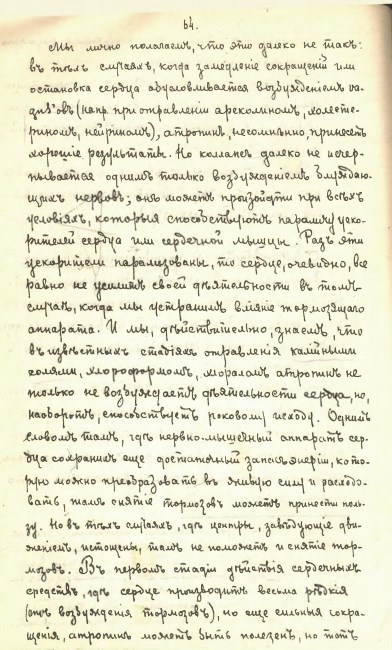 64.
Мы лично полагаем, что это далеко не такъ:
въ тѣхъ случаяхъ, когда замедленіе сокращеній или
остановка сердца обусловливается возбужденіемъ va-
gus'овъ (напр. при отравленіи ареколиномъ, холесте-
риномъ, нейриномъ), атропинъ, несомнѣнно, принесетъ
хорошіе результаты. Но коллапсъ далеко не исчер-
пывается однимъ только возбужденіемъ блуждаю-
щихъ нервовъ; онъ можетъ произойти при всѣхъ
условіяхъ, которыя способствуютъ параличу уско-
рителей сердца или сердечной мышцы. Разъ эти
ускорители парализованы, то сердце, очевидно, все
равно не усилитъ своей дѣятельности въ томъ
случаѣ, когда мы устранимъ вліяніе тормозящаго
аппарата. И мы, дѣйствительно, знаемъ, что
въ извѣстныхъ стадіяхъ отравленія калійными
солями, хлороформомъ, хлораломъ атропинъ не
только не возбуждаетъ дѣятельности сердца, но,
наоборотъ, способствуетъ роковому исходу. Однимъ
словомъ тамъ, гдѣ нервно-мышечный аппаратъ сер-
дца сохранилъ еще достаточный запасъ энергіи, кото-
рую можно преобразовать въ живую силу и расходо-
вать, тамъ снятіе тормозовъ можетъ принести поль-
зу. Но въ тѣхъ случаяхъ, гдѣ центры, завѣдующіе дви-
женіемъ, истощены, тамъ не поможетъ и снятіе тор-
мозовъ. Въ первомъ стадіи дѣйствія сердечныхъ
средствъ, гдѣ сердце производитъ весьма рѣдкія
(отъ возбужденія тормозовъ), но еще сильныя сокра-
щенія, атропинъ можетъ быть полезенъ, но тотъ